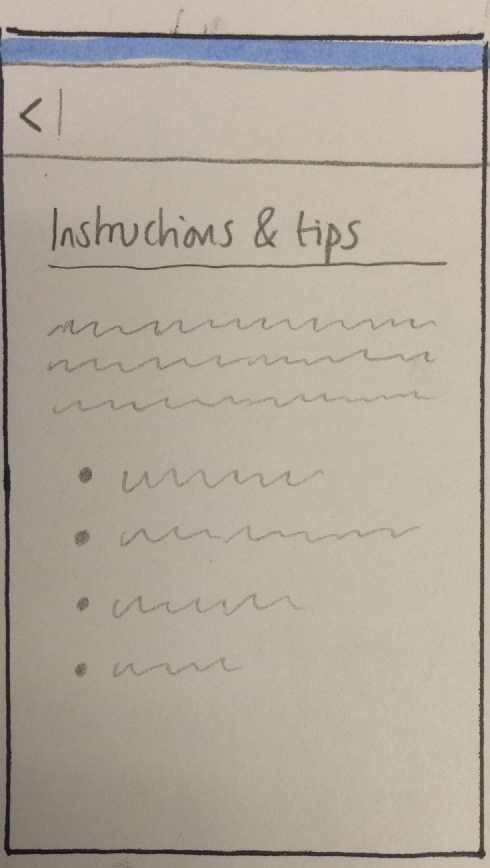 Instructions & tips